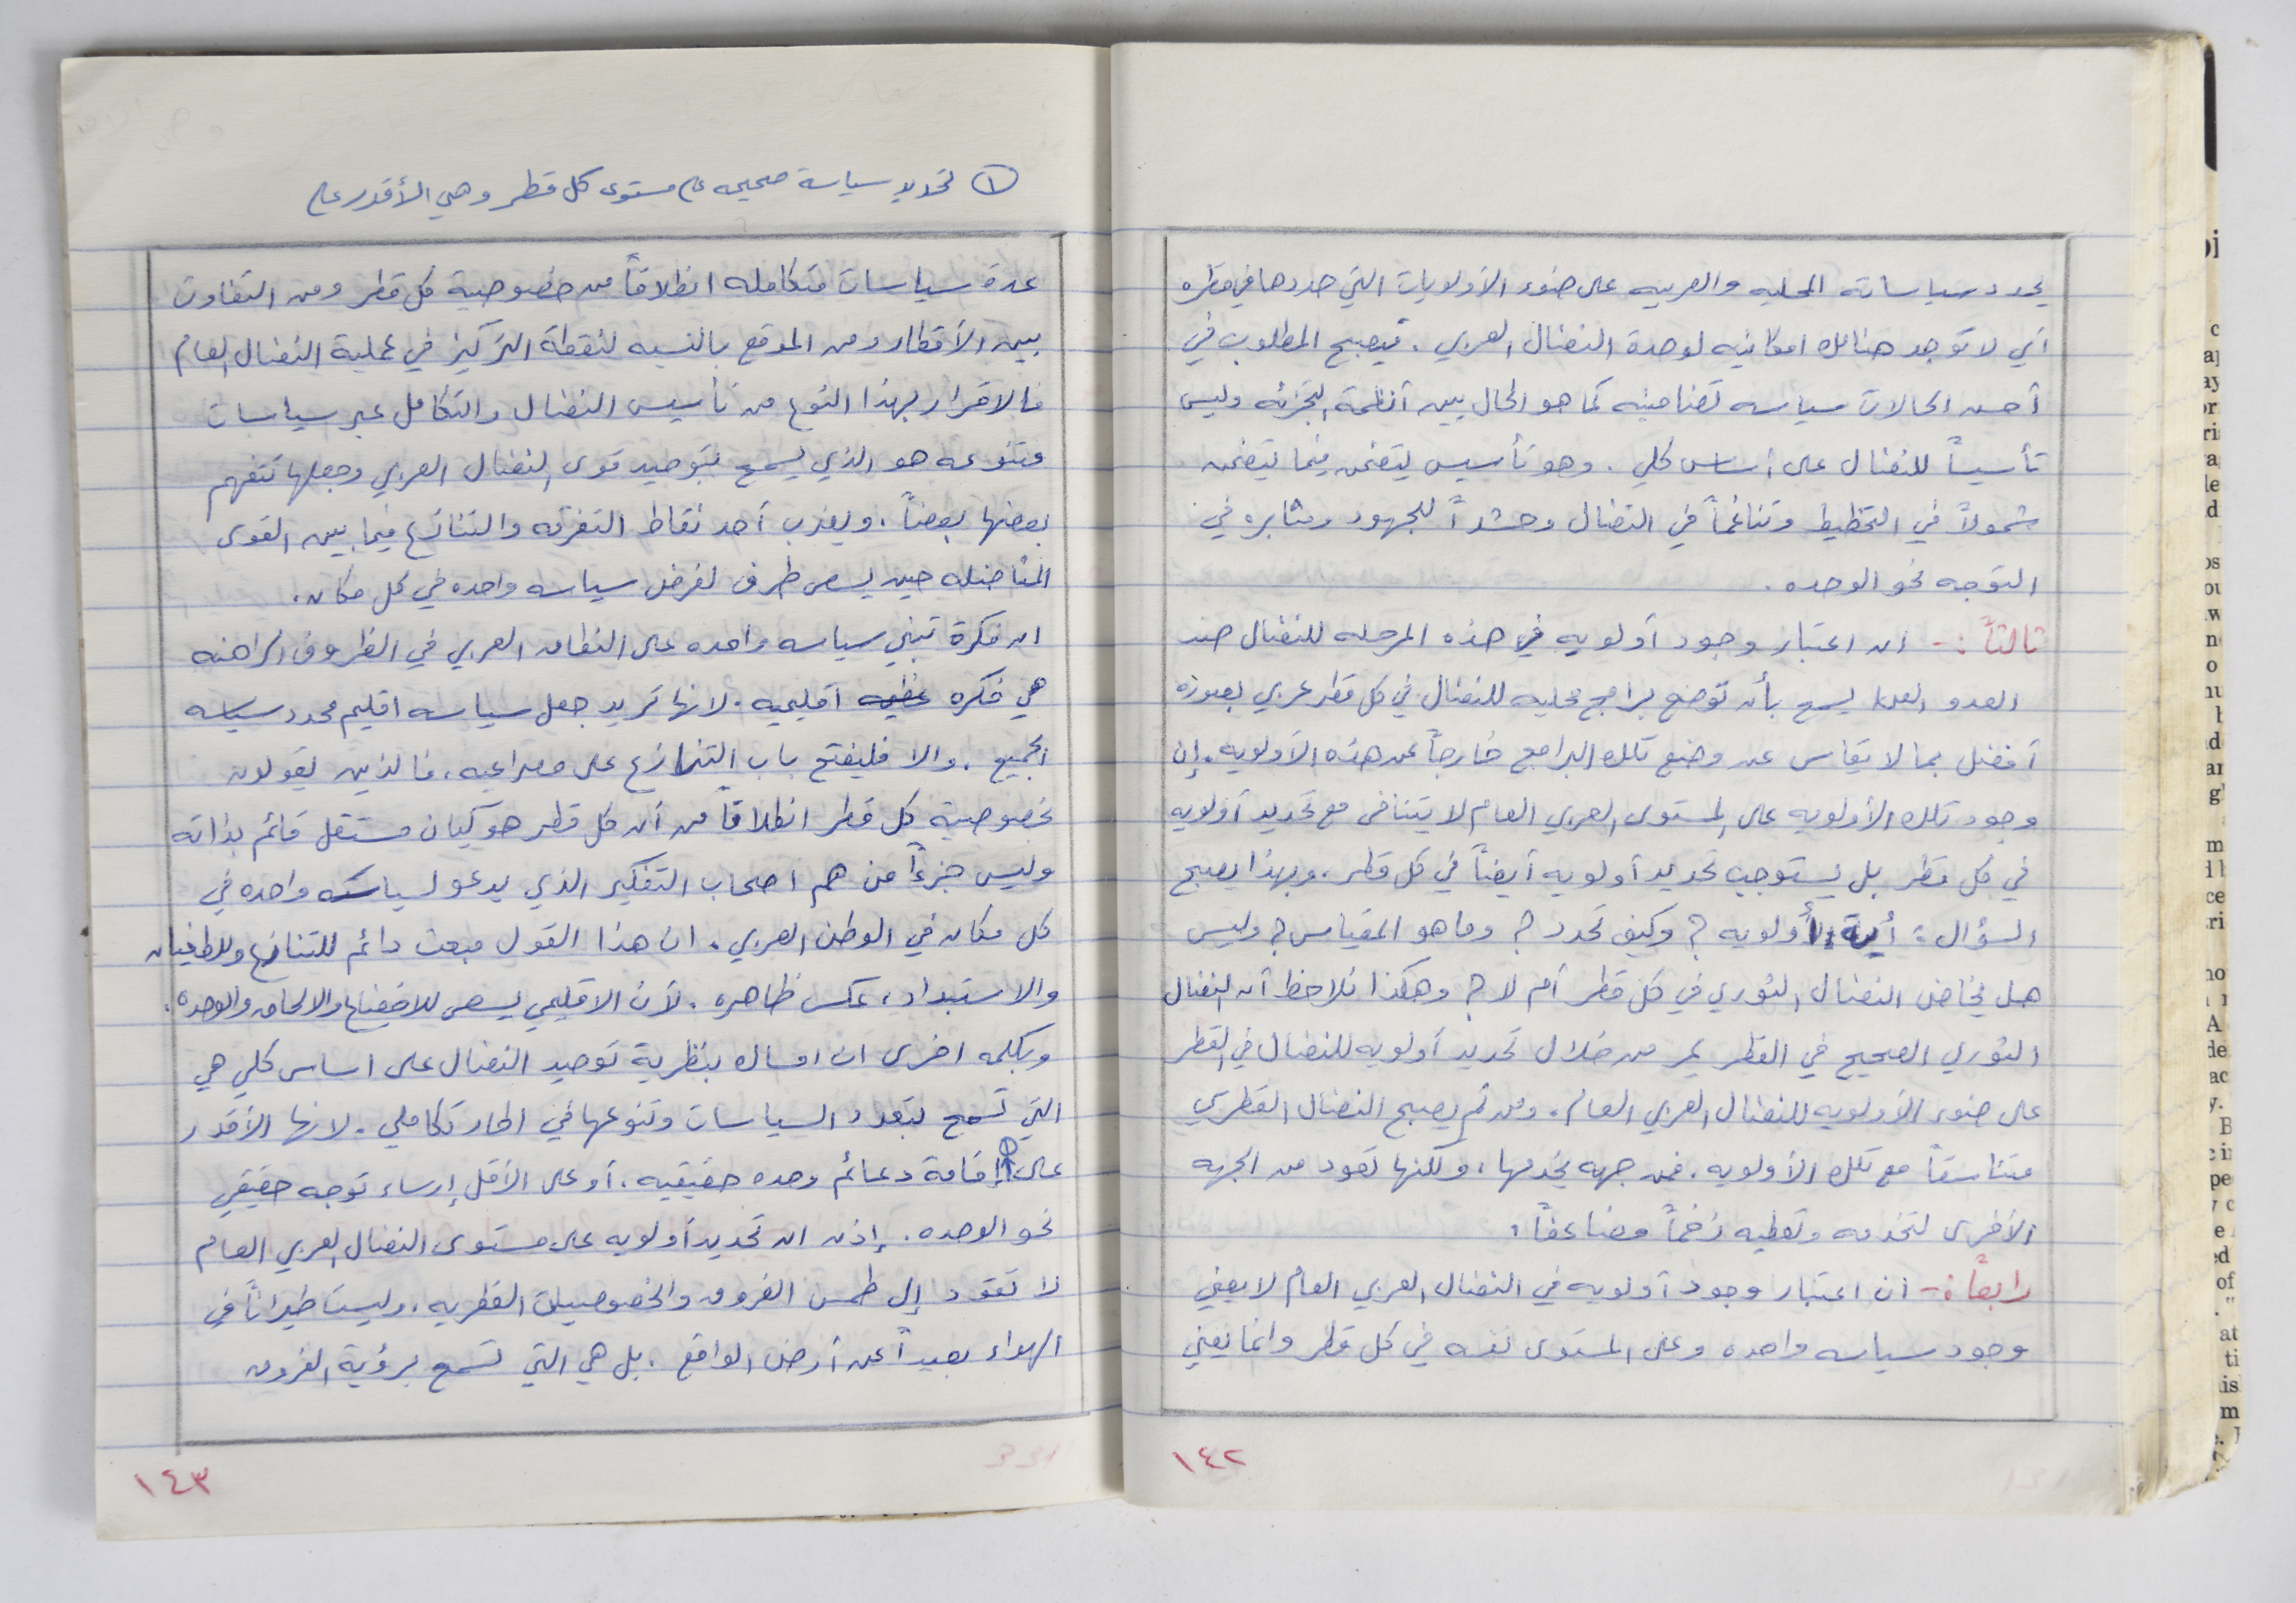 يحدد سياساته المحليه والعربيه على ضوء الأولويات التي حددها في قطره
أي لا توجد هنالك امكانيه لوحدة النضال العربي . فيصبح المطلوب في
أحسن الحالات سياسه تضامنيه كما هو الحال بين أنظمة التجزئه وليس
تأسيساً للنضال على أساس كلي . وهو تأسيس يتضمن فيما يتضمن
شمولاً في التخطيط وتناغماً في النضال وحشداً للجهود ومثابره في
التوجه نحو الوحده .
ثالثاً :- ان اعتبار وجود أولويه في هذه المرحله للنضال ضد
العدو يسمح بأن توضع برامج محليه للنضال في كل قطر عربي بصوره
أفضل بما لا يقاس عن وضع تلك البرامج خارجاً عن هذه الأولويه . إن
وجود تلك الأولويه على المستوى العربي العام لا يتنافى مع تحديد أولويه
في كل قطر بل يستوجب تحديد أولويه أيضاً في كل قطر . وبهذا يصبح
السؤال : أية أولويه ؟ وكيف تحدد ؟ وما هو المقياس ؟ وليس
هل يخاض النضال الثوري في كل قطر أم لا ؟ وهكذا نلاحظ أن النضال
الثوري الصحيح في القطر يمر من خلال تحديد أولويه للنضال في القطر
على ضوء الأولويه للنضال العربي العام . ومن ثم يصبح النضال القطري
متناسقاً مع تلك الأولويه . فمن جهه يخدمها ، ولكنها تعود من الجهه
الأخرى لتخدمه وتعطيه زخماً مضاعفاً .
رابعاً :- ان اعتبار وجود أولويه في النضال العربي العام لا يعني
وجود سياسه واحده وعلى المستوى نفسه في كل قطر وانما يعني
١٤٢
① تحديد سياسة صحيحه على مستوى كل قطر وهي الأقدر على
عدة سياسات متكامله انطلاقاً من خصوصية كل قطر ومن التفاوت
بين الأقطار ومن الموقع بالنسبه لنقطة التركيز في عملية النضال العام
فالاقرار بهذا النوع من تأسيس النضال والتكامل عبر سياسات
متنوعه هو الذي يسمح بتوحيد قوى النضال العربي وجعلها تتفهم
بعضها بعضاً . ويضرب أحد نقاط التفرقه والتنازع فيما بين القوى
المناضله حين يسعى طرف لفرض سياسه واحده في كل مكان .
ان فكرة تبني سياسه واحده على النطاق العربي في الظروف الراهنه
هي فكره اقليميه . لانها تريد جعل سياسه اقليم محدد سياسه
الجميع . والا فليفتح باب التنازع على مصراعيه . فالذين يقولون
بخصوصية كل قطر انطلاقاً من أن كل قطر هو كيان مستقل قائم بذاته
وليس جزءاً من هم اصحاب التفكير الذي يدعو لسياسه واحده في
كل مكان في الوطن العربي . ان هذا القول مبعث دائم للتنازع وللطغيان
والاستبداد ، عكس ظاهره . لأن الاقليمي يسعى للاخضاع والالحاق والوحده .
وبكلمه اخرى ان امساك بنظرية توحيد النضال على اساس كلي هي
التي تسمح بتعدد السياسات وتنوعها في اطار تكاملي . لانها الأقدر
على ① إقامة دعائم وحده حقيقيه . أو على الأقل إرساء توجه حقيقي
نحو الوحده . إذن ان تحديد أولويه على مستوى النضال العربي العام
لا تقود إلى طمس الفروق والخصوصيات القطريه . وليست طيراناً في
الهواء بعيداً عن أرض الواقع . بل هي التي تسمح برؤية الفروق
١٤٣